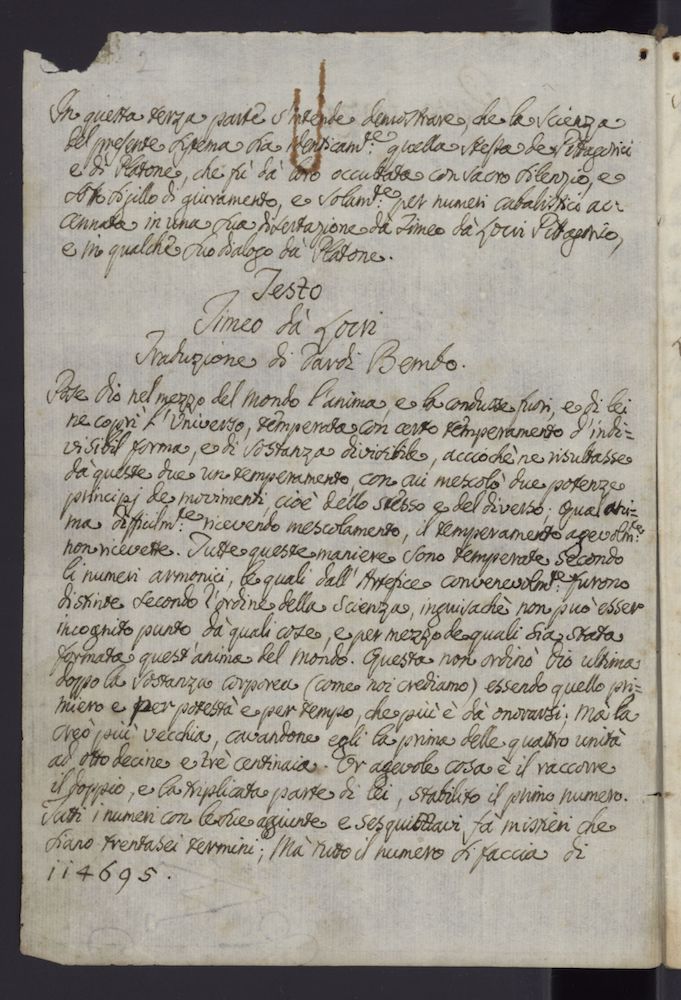 2
In questa terza parte s'intende dimostrare, che la scienza
del presente sistema sia identicam.te quella stessa de Pittagorici
e di Platone, che fù da loro occultata con sacro silenzio, e
sotto sigillo di giuramento, e solam.te per numeri cabalistici ac=
cennata in una sua dissertazione da Timeo da Locri Pittagorico,
e in qualche suo dialogo da Platone.
Testo
Timeo da Locri
Traduzione di Dardi Bembo.
Pose Dio nel mezzo del mondo l'anima, e la condusse fuori, e di lei
ne coprì l'Universo, temperata con certo temperamento d'indi=
visibil forma, e di sostanza divisibile, acciochè ne risultasse
da queste due un temperamento, con cui mescolò due potenze
principj de movimenti, cioè dello stesso e del diverso; Qual ani=
ma difficilm.te ricevendo mescolamento, il temperamento agevolm.te
non ricevette. Tutte queste maniere sono temperate secondo
li numeri armonici, le quali dall'Artefice convenevolm.te furono
distinte secondo l'ordine della scienza, inguisachè non può esser
incognito punto da quali cose, e per mezzo de quali sia stata
formata quest'anima del mondo. Questa non ordinò Dio ultima
doppo la sostanza corporea (come noi crediamo) essendo quello pri=
miero e per potestà e per tempo, che più è da onorarsi; Mà la
creò più vecchia, cavandone egli la prima delle quattro unità
ad otto decine e trè centinaia. Or agevole cosa è il raccorre
il doppio, e la triplicata parte di lei, stabilito il primo numero.
Tutti i numeri con le sue aggiunte e sesquiottavi, fà mistieri che
siano trentasei termini; Mà tutto il numero si faccia di
114695.